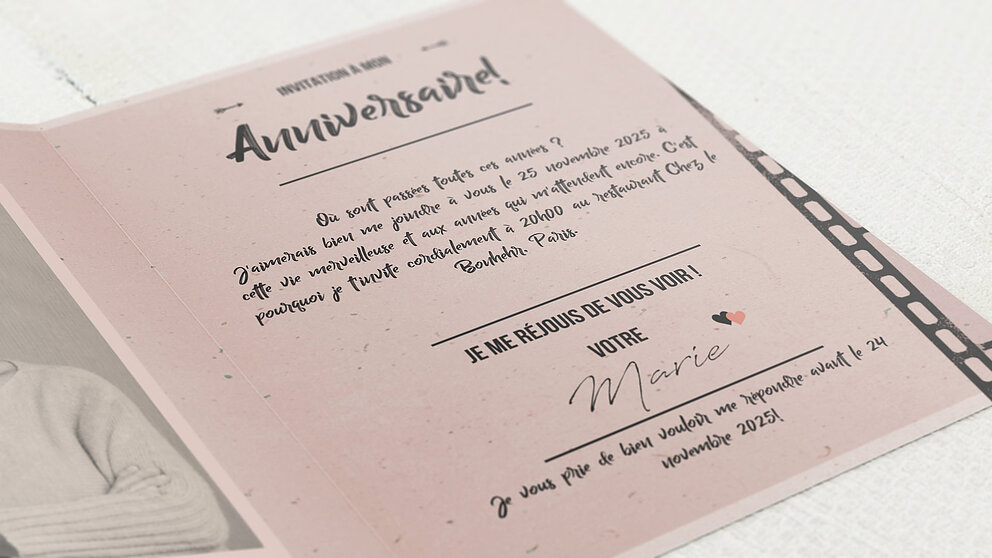 INVITATION À MON
Anniversaire!
Où sont passées toutes ces années ?
J'aimerais bien me joindre à vous le 25 novembre 2025 à
cette vie merveilleuse et aux années qui m'attendent encore. C'est
pourquoi je t'invite cordialement à 20h00 au restaurant Chez le
Bonhehr. Paris.
JE ME RÉJOUIS DE VOUS VOIR !
VOTRE
Marie
Je vous prie de bien vouloir me répondre avant le 24
novembre 2025!